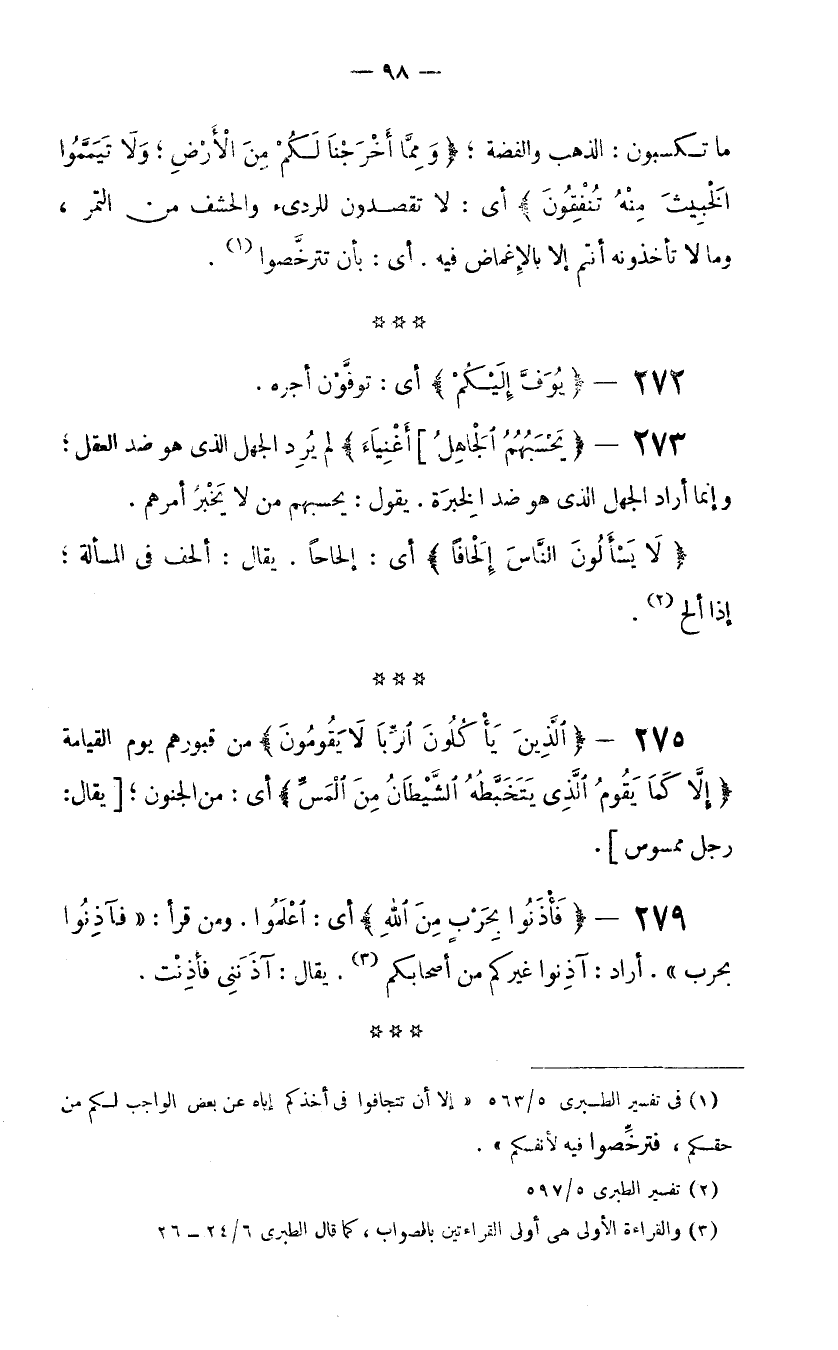 — ٩٨ —
ما تكسبون : الذهب والفضة ؛ ﴿ وَمِمَّا أَخْرَجْنَا لَكُمْ مِنَ الْأَرْضِ ؛ وَلَا تَيَمَّمُوا
الْخَبِيثَ مِنْهُ تُنْفِقُونَ ﴾ أى : لا تقصدون للردىء والحشف من التمر ،
وما لا تأخذونه أنتم إلا بالإغماض فيه . أى : بأن تترخَّصوا (١) .
✲ ✲ ✲
٢٧٢ — ﴿ يُوَفَّ إِلَيْكُمْ ﴾ أى : توفَّوْن أجره .
٢٧٣ — ﴿ يَحْسَبُهُمُ ٱلْجَاهِلُ ] أَغْنِيَاءَ ﴾ لم يُرِد الجهل الذى هو ضد العقل ؛
وإنما أراد الجهل الذى هو ضد الِخبرَة . يقول : يحسبهم من لا يَخْبُرُ أمرهم .
﴿ لَا يَسْأَلُونَ النَّاسَ إِلْحَافًا ﴾ أى : إلحاحاً . يقال : ألحف فى المسألة ؛
إذا ألح (٢) .
✲ ✲ ✲
٢٧٥ — ﴿ ٱلَّذِينَ يَأْكُلُونَ ٱلرِّبَا لَا يَقُومُونَ ﴾ من قبورهم يوم القيامة
﴿ إِلَّا كَمَا يَقُومُ ٱلَّذِى يَتَخَبَّطُهُ ٱلشَّيْطَانُ مِنَ ٱلْمَسِّ ﴾ أى : من الجنون ؛ [ يقال :
رجل ممسوس ] .
٢٧٩ — ﴿ فَأْذَنُوا بِحَرْبٍ مِنَ ٱللهِ ﴾ أى : ٱعْلَمُوا . ومن قرأ : « فَآذِنُوا
بحرب » . أراد : آذِنوا غيركم من أصحابكم (٣) . يقال : آذَنَنِى فأَذِنْت .
✲ ✲ ✲
(١) فى تفسير الطبرى ٥/٥٦٣ « إلا أن تتجافوا فى أخذكم إياه عن بعض الواجب لكم من
حقكم ، فترخِّصوا فيه لأنفسكم » .
(٢) تفسير الطبرى ٥/٥٩٧
(٣) والقراءة الأولى هى أولى القراءتين بالصواب ، كما قال الطبرى ٦/٢٤ — ٢٦